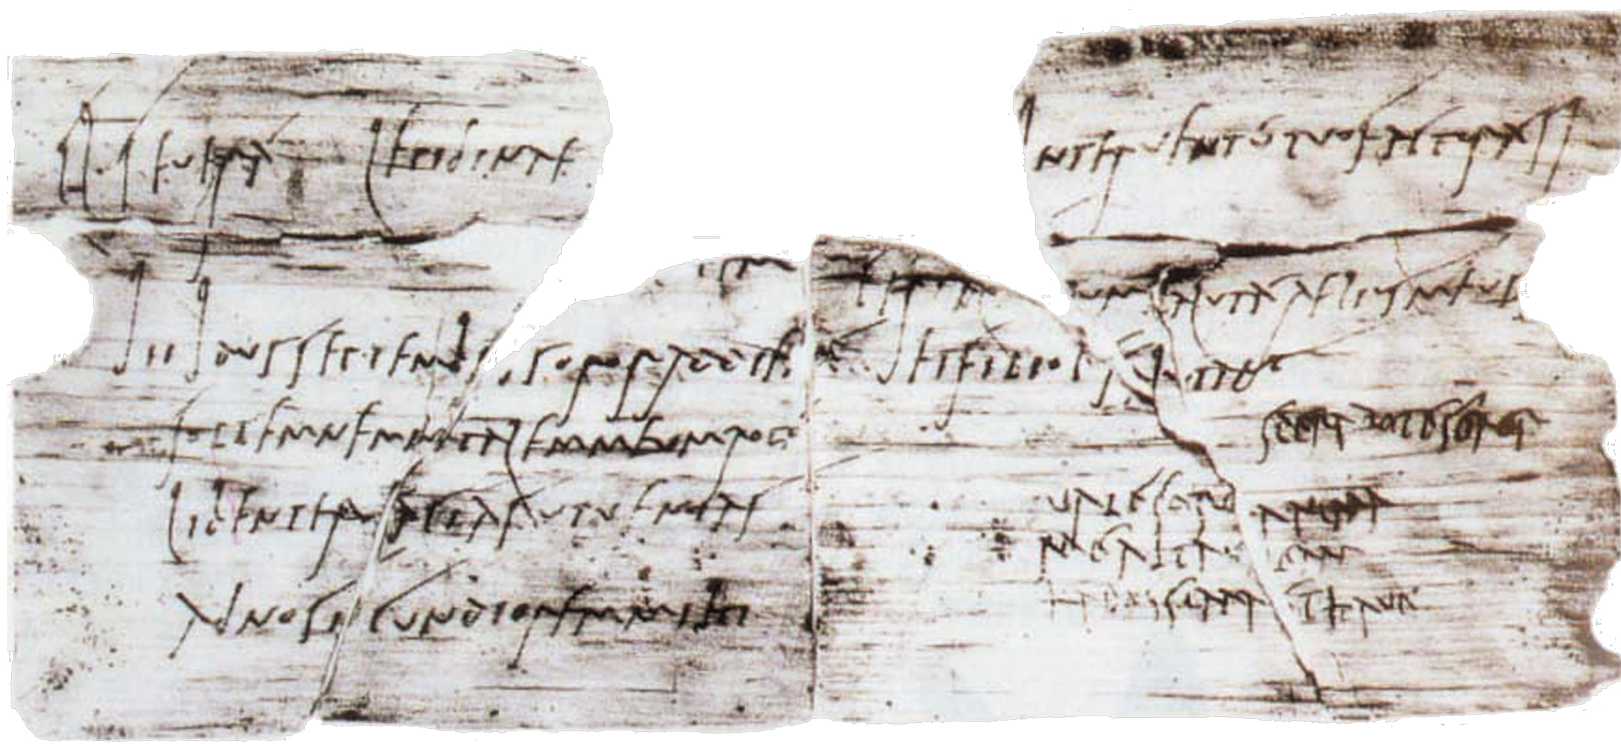 Cl Severa Lepidinae
tem
iii Idus Septembr s soror ad diem
sollemnem natalem meum rogo
libenter facias ut venias
ad nos iucundiorem mihi
interventu tuo factura si
Cerial uum saluta Aelius meus
et filiolus salutant
sperabo te soror
vale soror anima
mea ita valeam
karissima et have